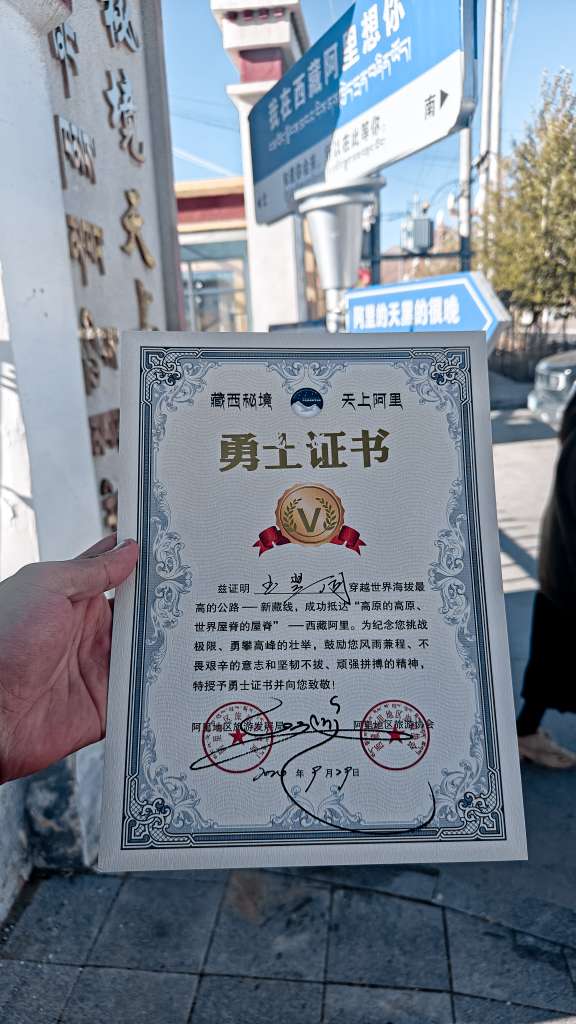 秘境天上
我在西藏阿里想你
南
在此等你
阿里的天屏的很晚
藏西秘境 天上阿里
勇士证书
V
兹证明 穿越世界海拔最
高的公路——新藏线，成功抵达“高原的高原、
世界屋脊的屋脊”——西藏阿里。为纪念您挑战
极限、勇攀高峰的壮举，鼓励您风雨兼程、不
畏艰辛的意志和坚韧不拔、顽强拼搏的精神，
特授予勇士证书并向您致敬！
阿里地区旅游发展局 阿里地区旅游协会
年9月29日